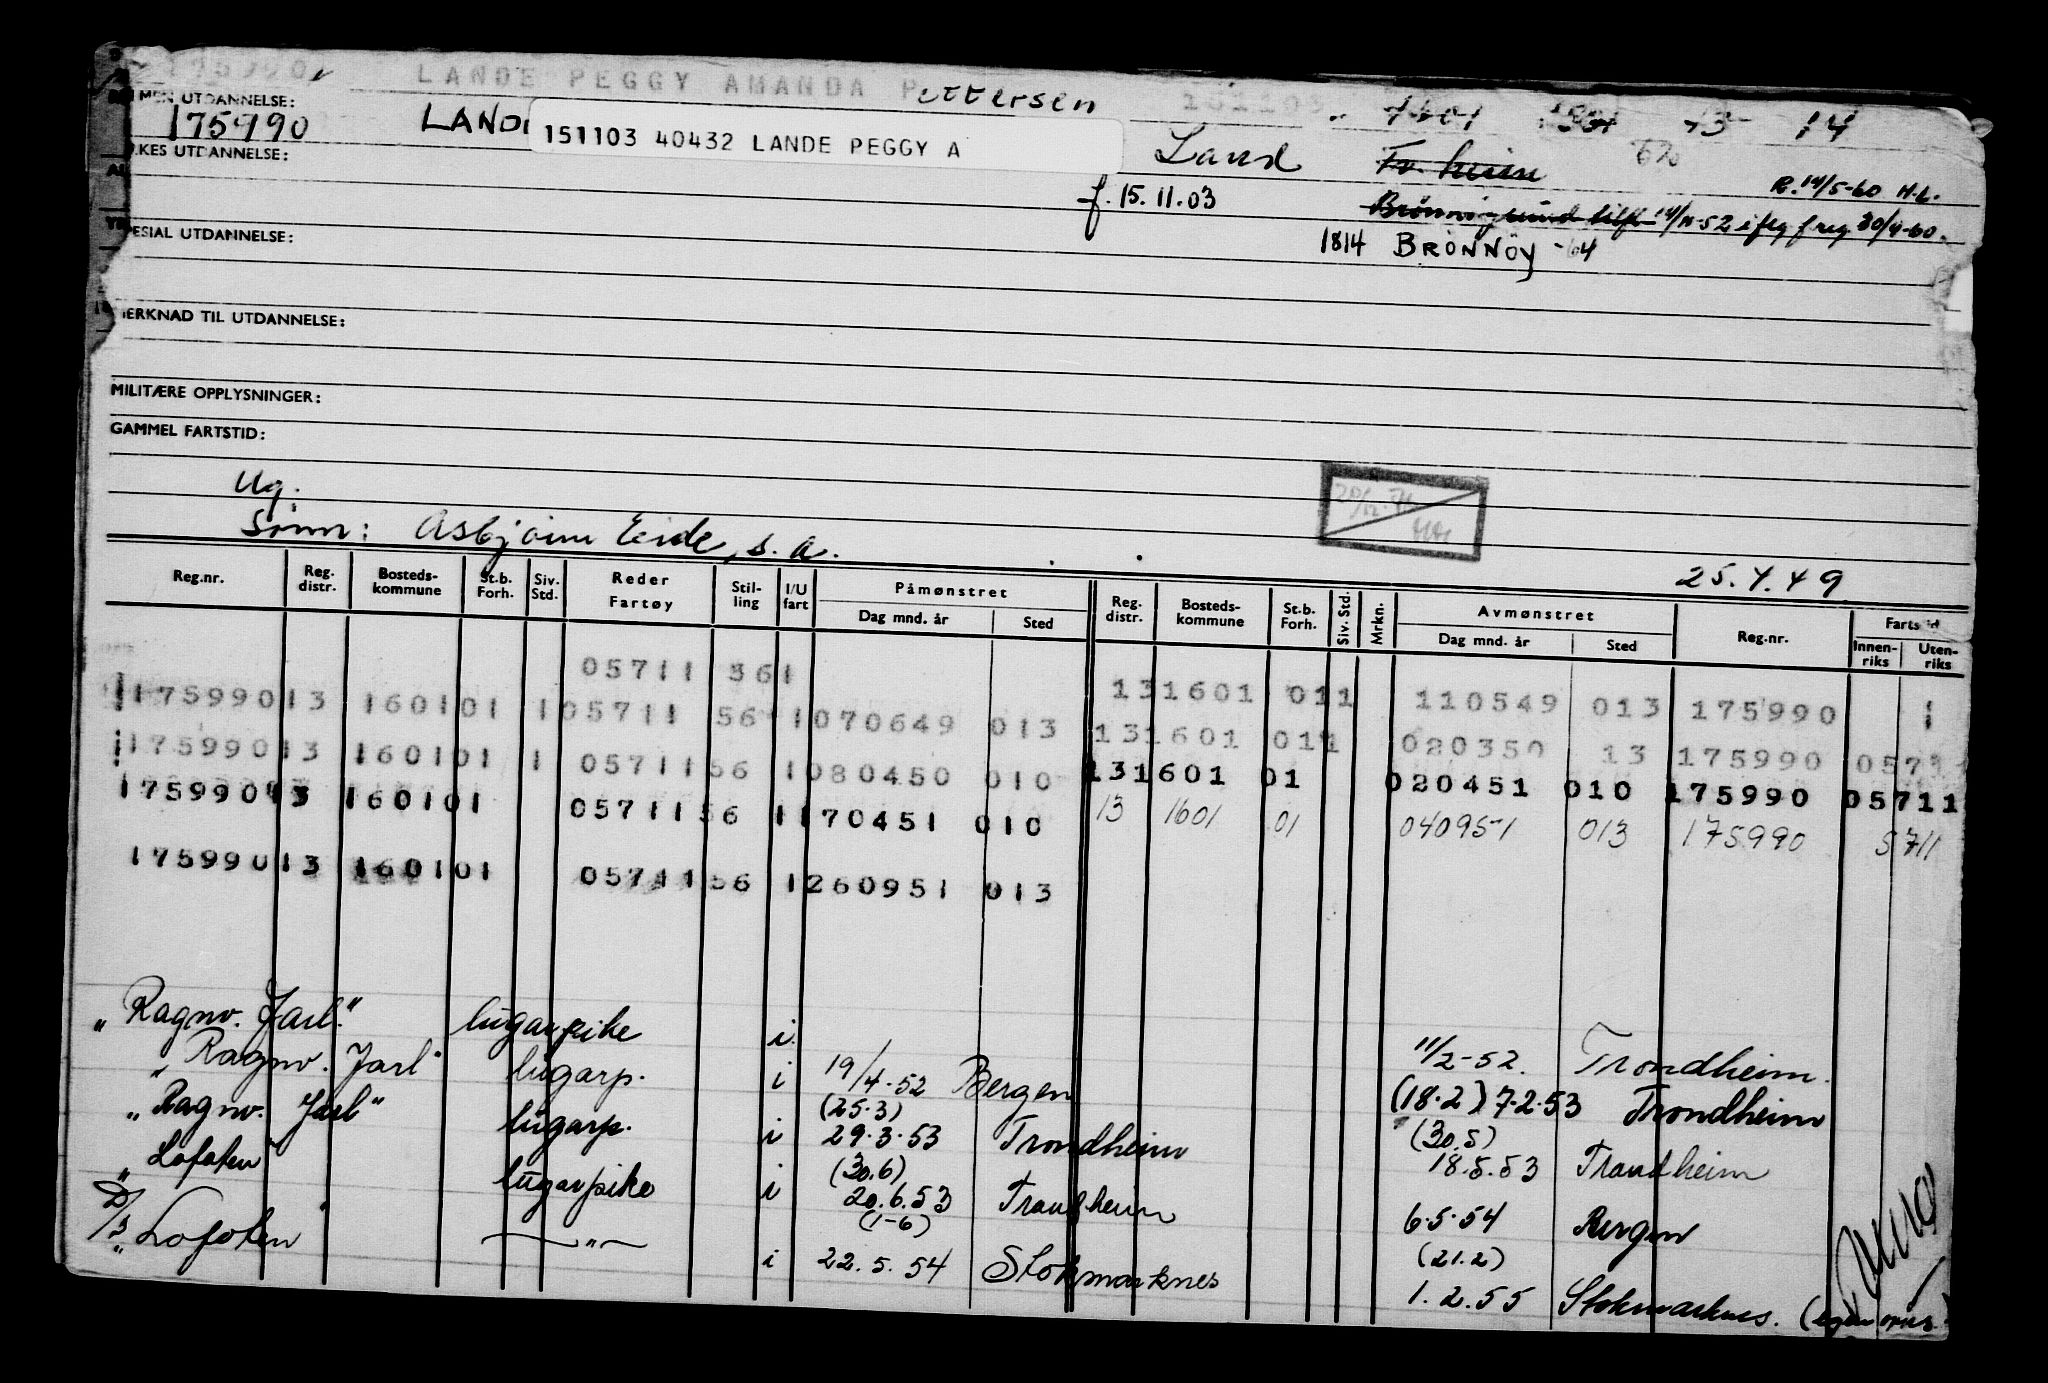 175990 LANDE PEGGY AMANDA Pettersen 151103
MEN UTDANNELSE:
175990 LAND
151103 40432 LANDE PEGGY A
7401 13 14
RKES UTDANNELSE:
Land
R. 14/5-60 H.L.
f. 15.11.03
14/11-52 ifлg freg 30/4-60.
ESIAL UTDANNELSE:
1814 BRØNNØY -64
ERKNAD TIL UTDANNELSE:
MILITÆRE OPPLYSNINGER:
GAMMEL FARTSTID:
Ug.
Sønn: Asbjørn Eide, s. a.
25.4.49
Reg.nr. Reg. distr. Bosteds-kommune St.b. Forh. Siv. Std. Reder Fartøy Stil-ling I/U fart Påmønstret Dag mnd. år Sted Reg. distr. Bosteds-kommune St.b. Forh. Siv. Std. Mrkn. Avmønstret Dag mnd. år Sted Reg.nr. Fartstid Innen-riks Uten-riks
05711 561 131601 011 110549 013 175990
175990 13 160101 1 05711 56 1 070649 013 131601 011 020350 13 175990 0571
175990 13 160101 1 05711 56 1 080450 010 131601 01 020451 010 175990 05711
175990 13 160101 05711 56 1 170451 010 13 1601 01 040951 013 175990 5711
175990 13 160101 05711 56 1 260951 013
"Ragnv. Jarl." lugarpike i. 11/2-52. Trondheim.
"Ragnv. Jarl" lugarp. i 19/4-52 Bergen (18.2) 7.2.53 Trondheim
"Ragnv. Jarl" lugarp. i (25.3) 29.3.53 Trondheim (30.5) 18.5.53 Trondheim
"Lofoten lugarpike i (30.6) 20.6.53 Trondheim 6.5.54 Bergen
D/S "Lofoten — " — i (1-6) 22.5.54 Stokmarknes (21.2) 1.2.55 Stokmarknes.